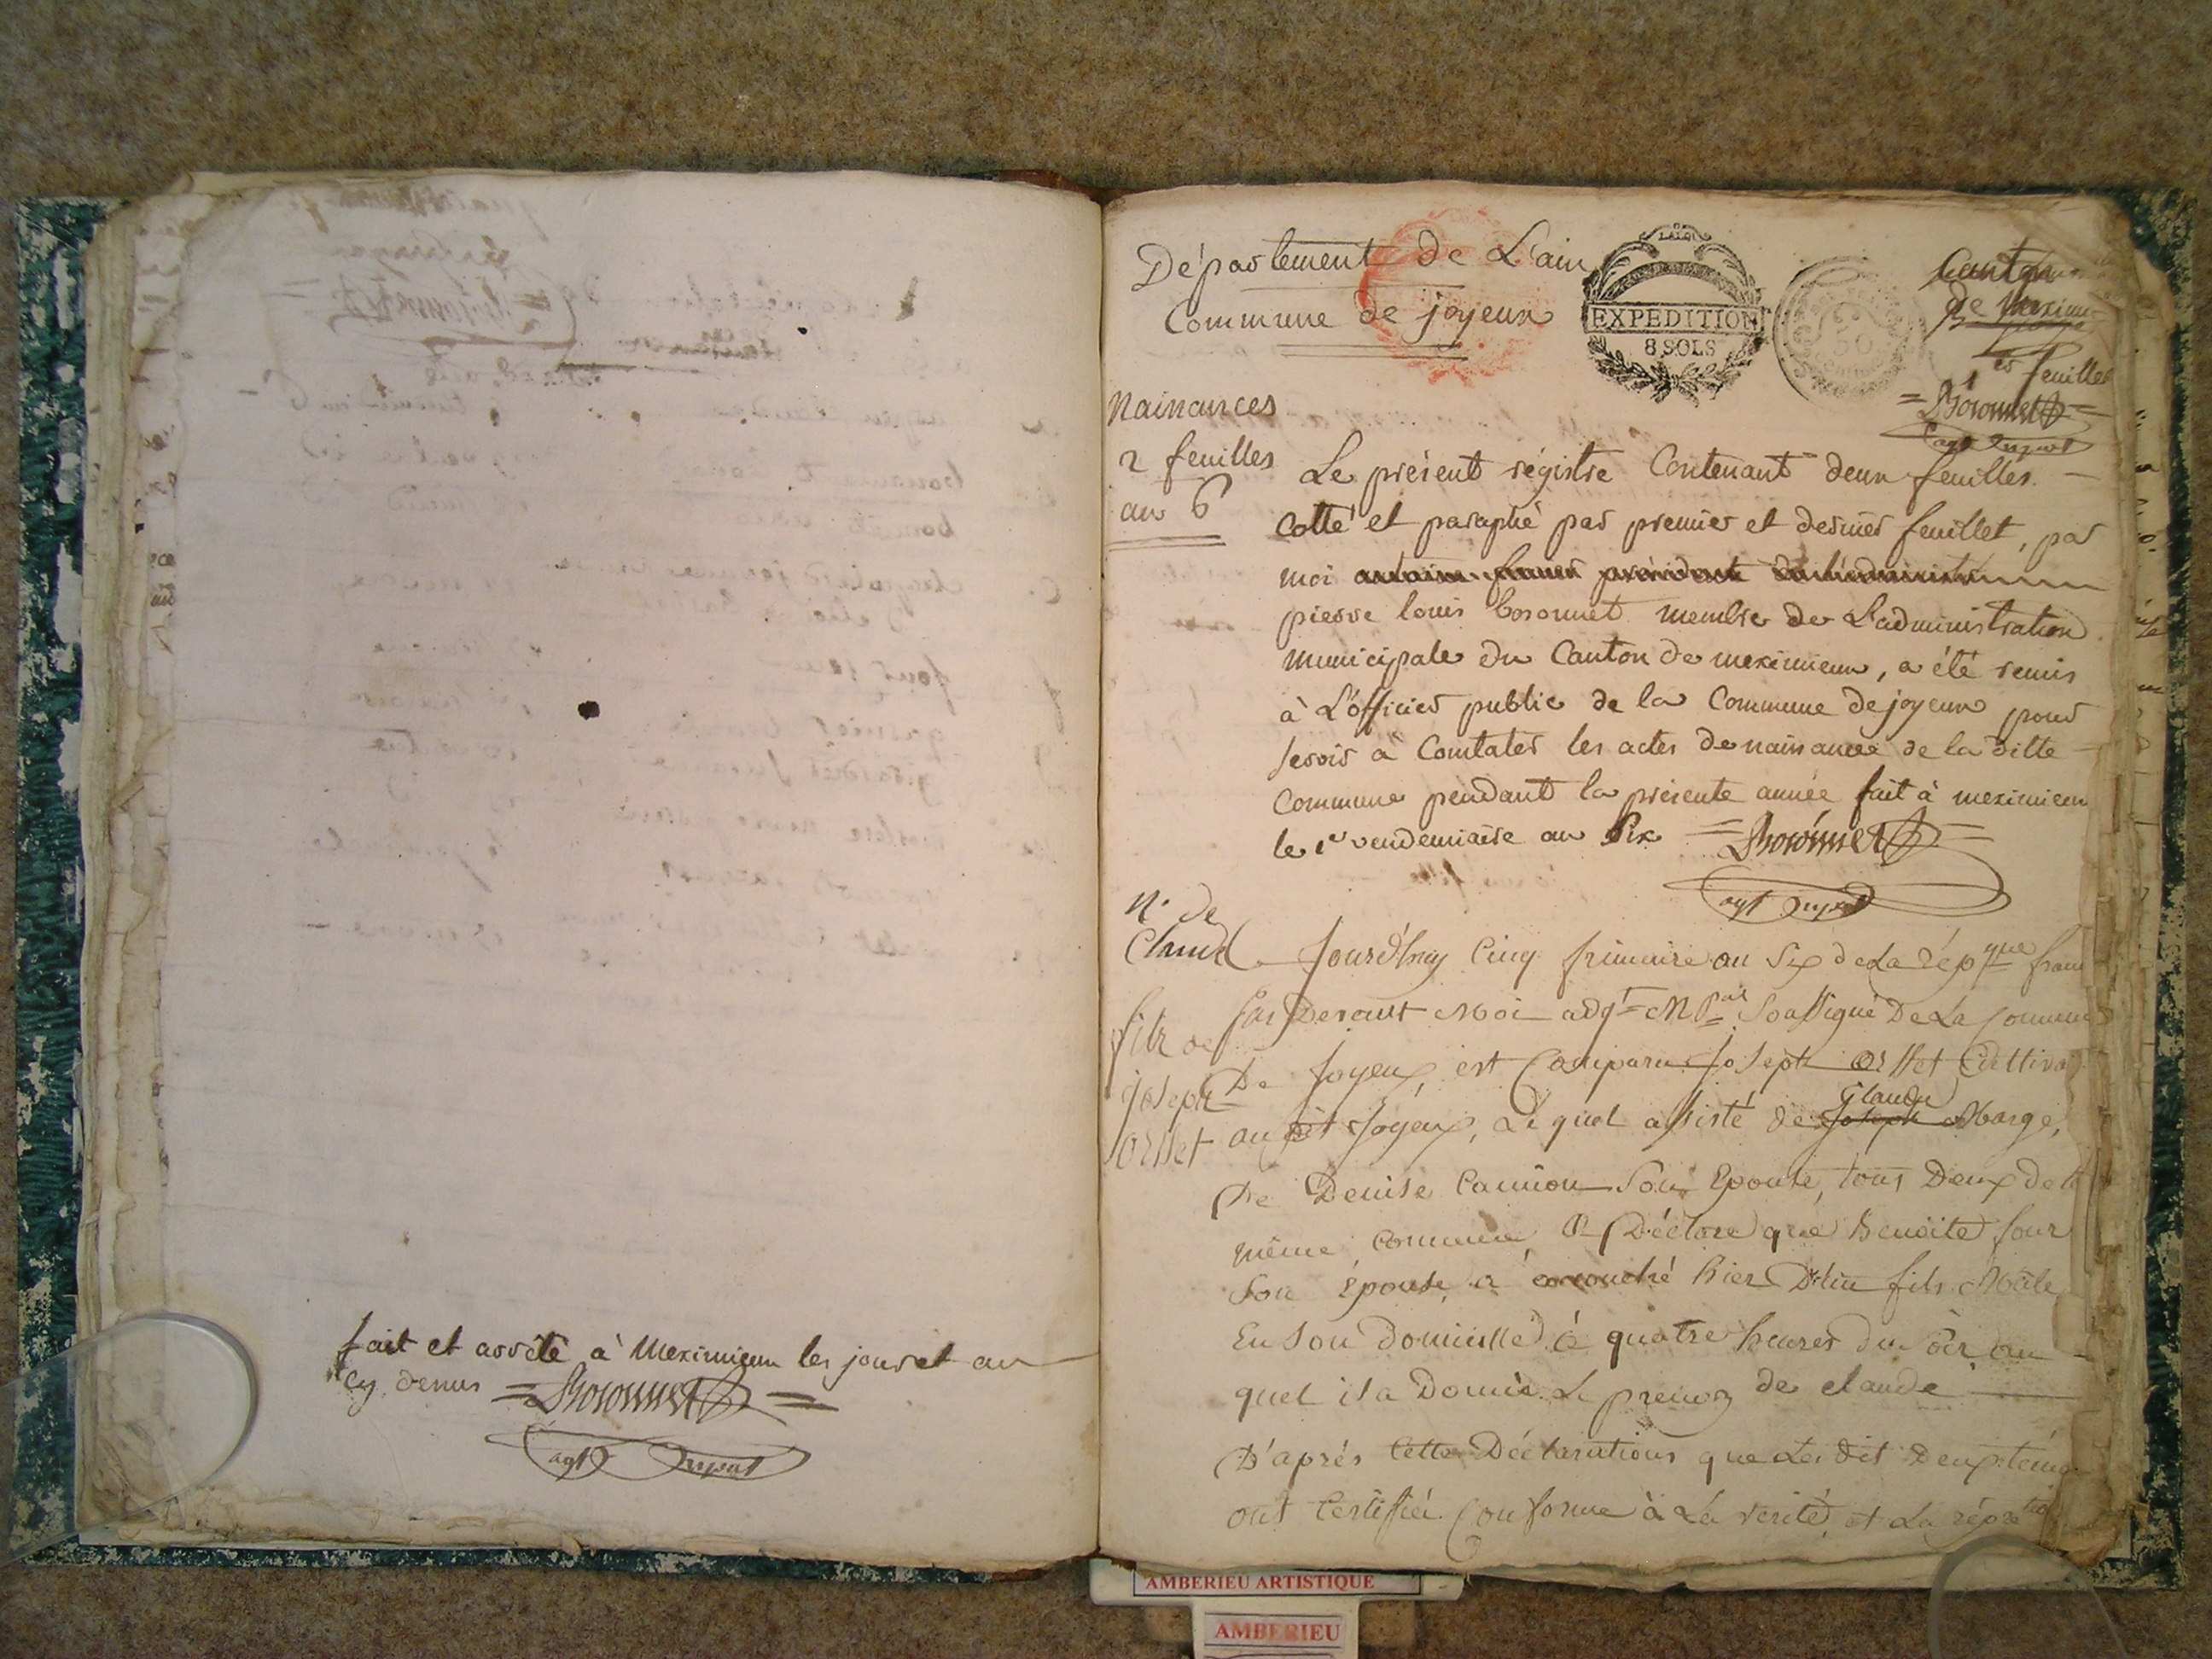 fait et arrêté à Meximieux les jour et an
cy dessus = Boronnet =
agt
Département de L'ain
Commune de joyeux
EXPEDITION
8 SOLS
Canton
de Meximieux
er feuillet
= Boronnet =
agt
Naissances
2 feuilles
an 6
Le présent régistre Contenant deux feuilles
Cotté et paraphé par premier et dernier feuillet, par
moi
pierre louis boronnet membre de L'administration
municipale du Canton de meximieux, a été remis
à L'officier public de la Commune de joyeux pour
servir à Constater les actes de naissance de la ditte
Commune pendant la présente année fait à meximieux
le 1er vendemiaire an Six = Boronnet =
agt
N. de
Claude
fils de
joseph
orsset
Jourd'huy Cinq frimaire an Six de La répque
Par Devant Moi adgt Mpal Soussigné De La Commune
De Joyeux, est Comparu Joseph orsset Cultiva
au dit Joyeux, Le quel assisté de Joseph Claude Marge,
De Denise Cannion Son Epouse, tous Deux de la
même Commune a Déclaré que Benoite four
Son épouse, a accouché hier D'un fils Mâle
En Son Domicille à quatre heures du Soir au
quel il a Donné Le prenom de claude
D'après Cette Déclarations que Les dit Deux témo
ont Certifiéé Conforme à La vérité, et La
AMBERIEU ARTISTIQUE
AMBERIEU